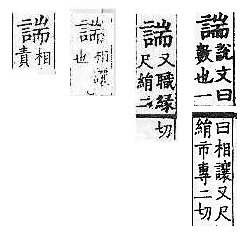 諯
説文曰
數也一
曰相讓又尺
絹市專二切
諯
又職緣
尺絹二
切
諯
相讓
也
諯
相
責